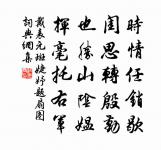 時情任銷歇
閨思轉殷勤
也勝山陰媼
揮毫托右軍
戴表元班婕妤題扇圖
詞典網集